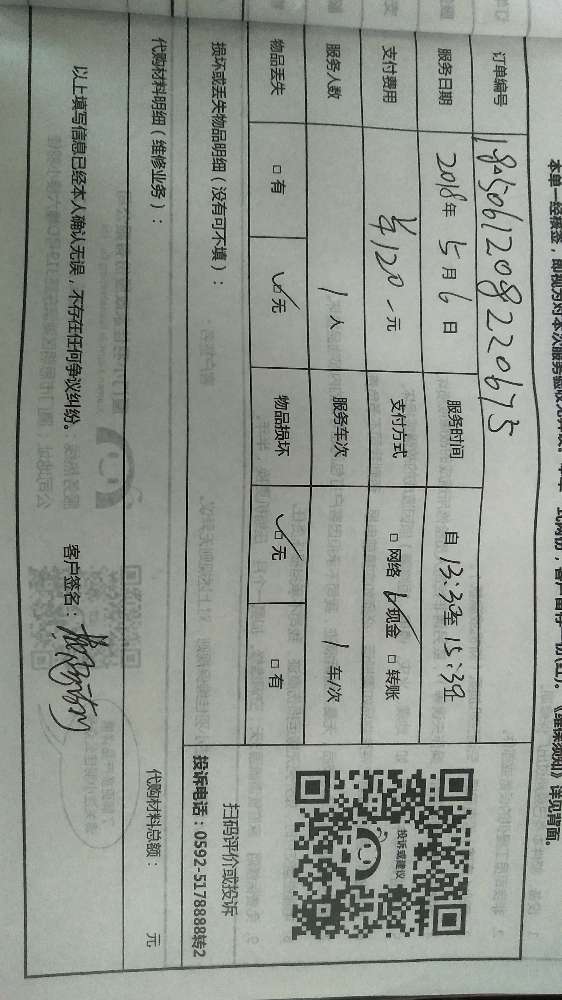 订单编号 1805061208220675
服务日期 2018年 5月 6日 服务时间 自 13:30至 15:30
支付费用 ¥120 元 支付方式 □ 网络 ☑现金 □ 转账
服务人数 1 人 服务车次 1 车/次
物品丢失 □ 有 ☑无 物品损坏 ☑无 □ 有
投诉或建议
扫码评价或投诉
投诉电话：0592-5178888转2
损坏或丢失物品明细（没有可不填）：
代购材料明细（维修业务）： 代购材料总额： 元
以上填写信息已经本人确认无误，不存在任何争议纠纷。 客户签名：